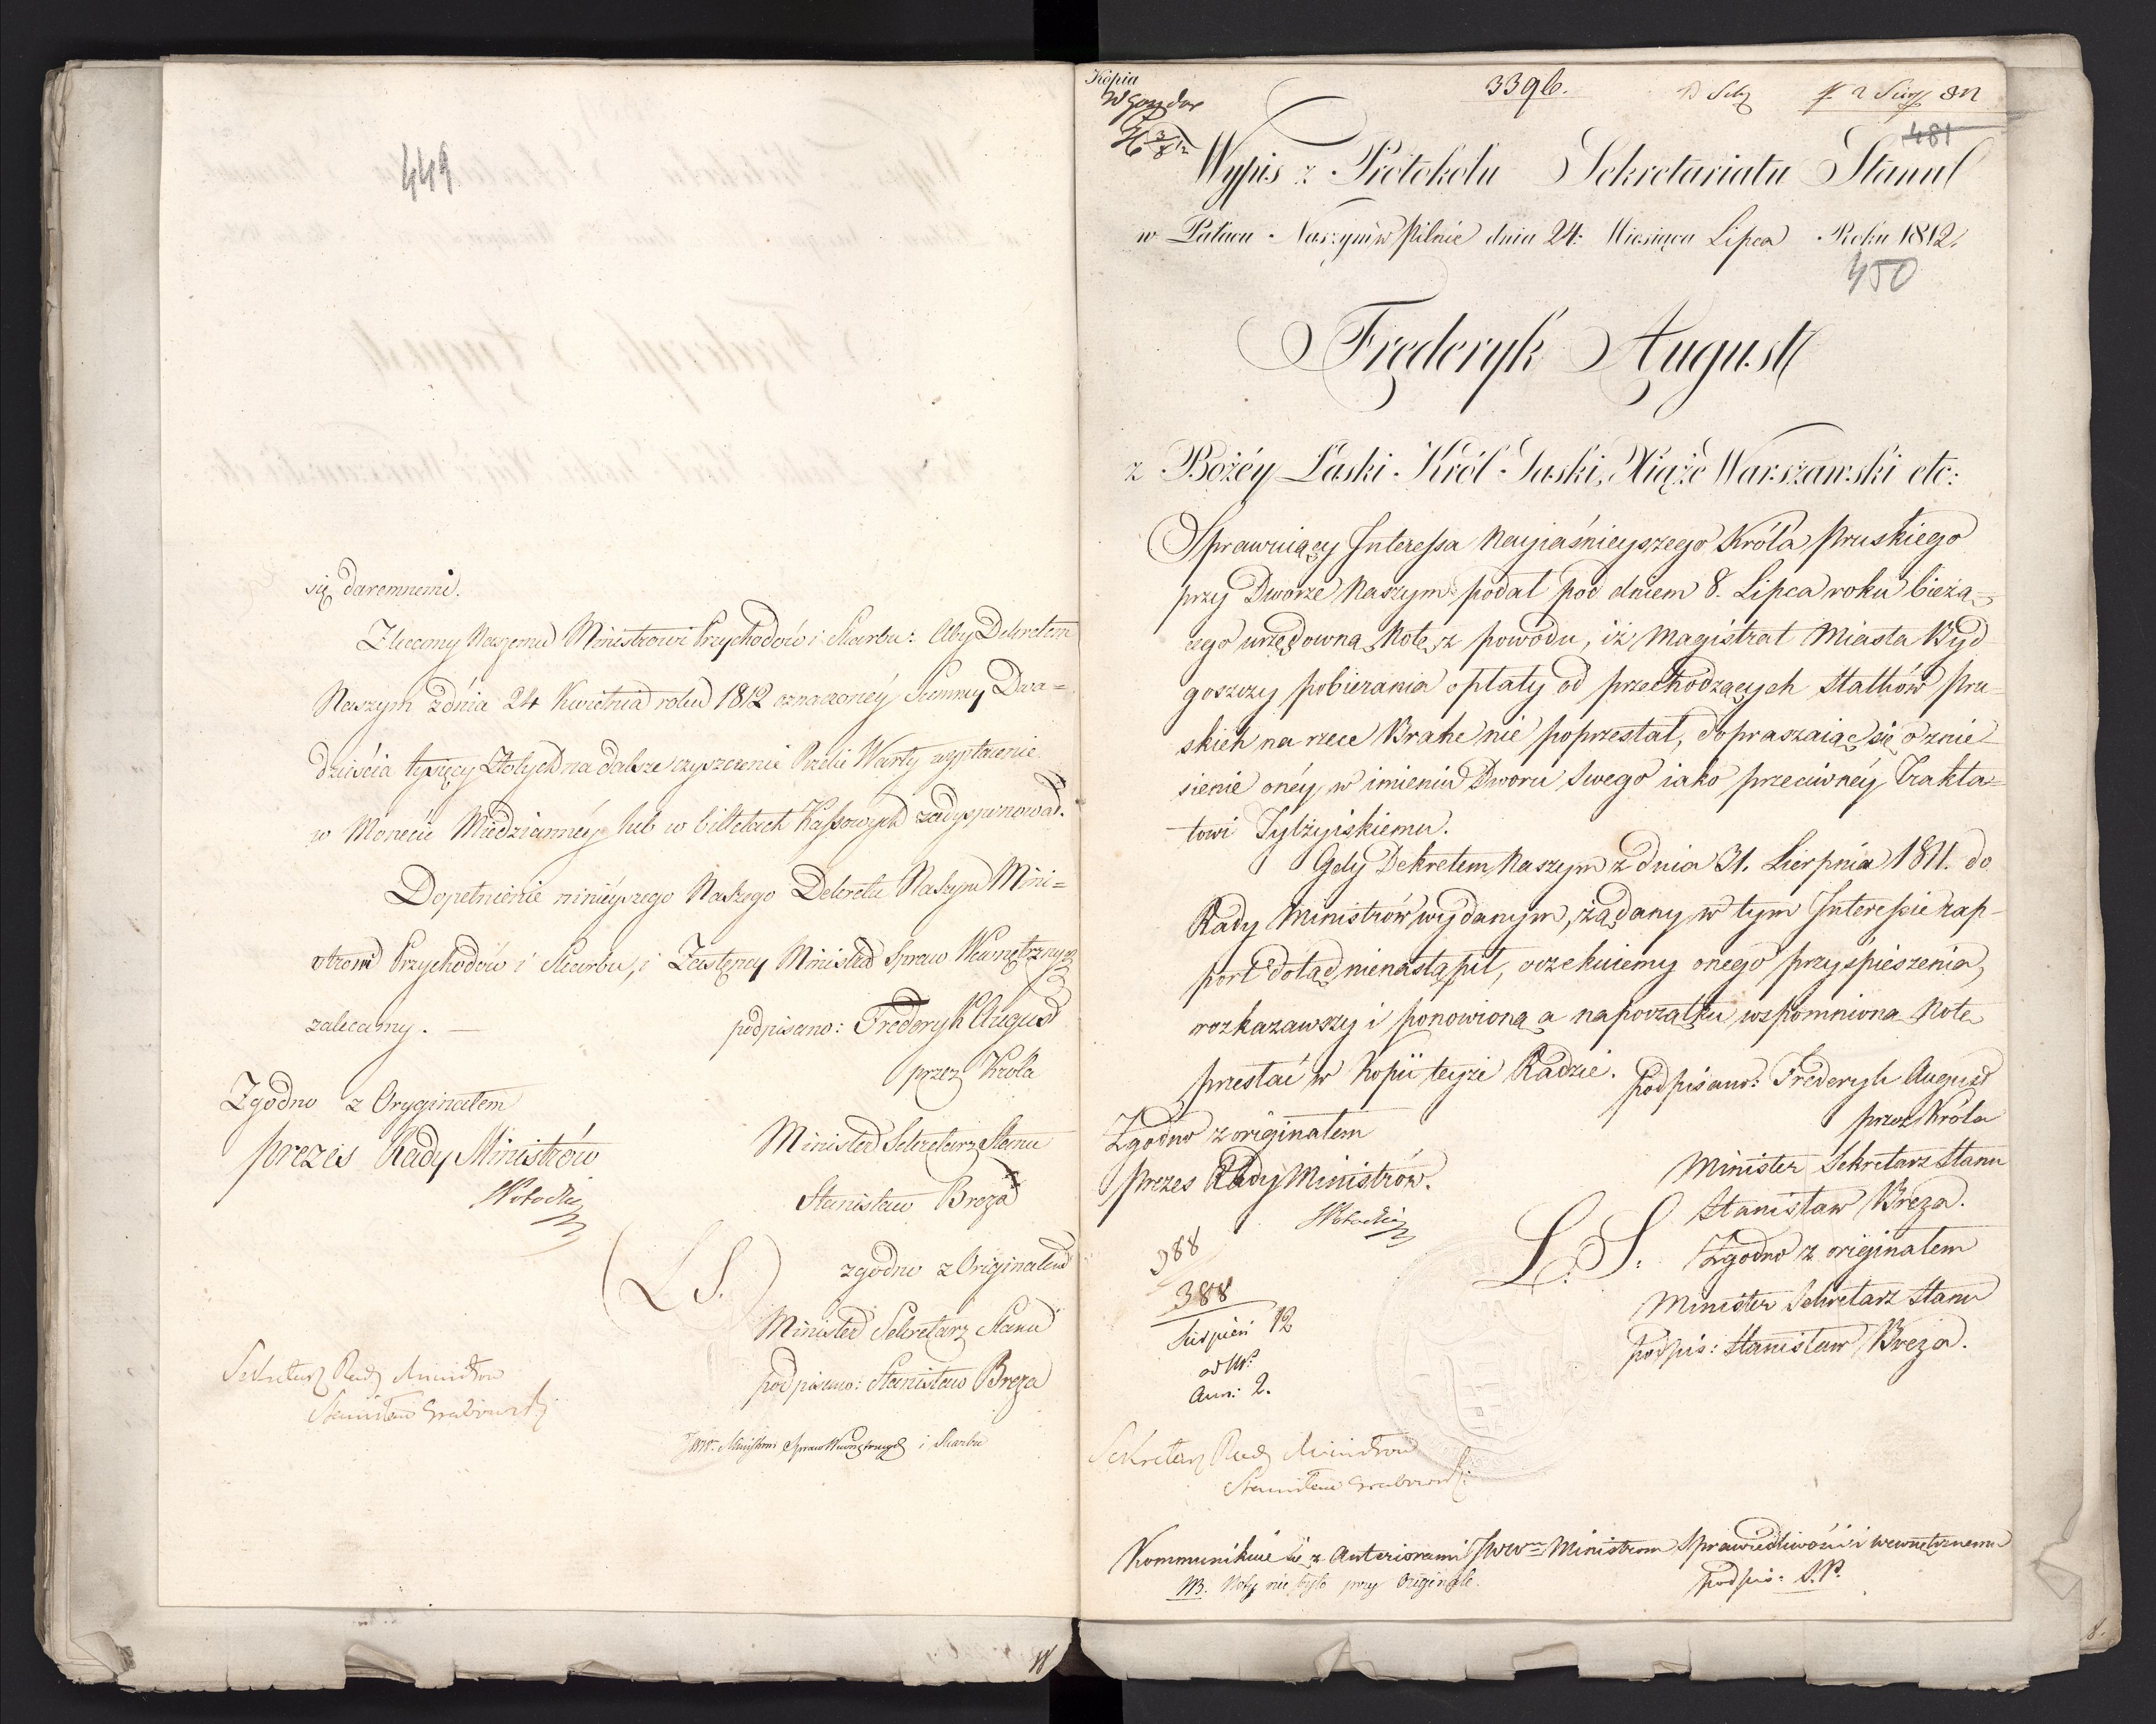 449
się daremnemi.
Zlecamy Naszemu Ministrowi Przychodów i Skarbu: Aby Dekretem
Naszym z dnia 24 Kwietnia roku 1812 oznaczoney Summy Dwa=
dzieścia tysięcy Złotych na dalsze czyszczenie Rzeki Warty wypłacenie
w Monecie Miedzianney lub w billetach Kassowych zadysponował.
Dopełnienie ninieyszego Naszego Dekretu Naszym Mini=
strom Przychodów i Skarbu, i Zastępcy Ministra Spraw Wewnętrznych
zalecamy. —
podpisano: Frederyk August
przez Króla
Minister Sekretarz Stanu
Stanisław Breza
Zgodno z Oryginałem
prezes Rady Ministrów
(L.S.)
zgodno z Originałem
Minister Sekretarz Stanu
podpisano: Stanisław Breza
Sekretarz Rady Ministrów
Stanisław Grabowski
JWW. Ministrowi Spraw Wewnętrznych i Skarbu
Kopia
3396.
481
Wypis z Protokołu Sekretariatu Stanu
w Pałacu Naszym w Pilnie dnia 24. Miesiąca Lipca Roku 1812.
450
Frederyk August
z Bożéy Łaski Król Saski, Xiąże Warszawski etc:
Sprawuiący Interessa Nayiaśnieyszego Króla Pruskiego
przy Dworze Naszym podał pod dniem 8. Lipca roku bieżą=
cego urzędowną Notę z powodu, iż Magistrat Miasta Byd
goszczy pobierania opłaty od przechodzących Statków Pru-
skich na rzece Brahe nie poprzestał, dopraszaiąc się o znie-
sienie onéy w imieniu Dworu swego iako przeciwnéy Trakta=
towi Tylżyiskiemu.
Gdy Dekretem Naszym z dnia 31. Sierpnia 1811. do
Rady Ministrów wydanym, żądany w tym Interessie rap-
port dotąd nienastąpił, oczekuiemy onego przyśpieszenia,
rozkazawszy i ponowioną a napoczątku wspomnioną Notę
przesłać w Kopii teyże Radzie.
podpisano: Frederyk August
przez Króla
Minister Sekretarz Stanu
Stanisław Breza.
Zgodno z originałem
Prezes Rady Ministrów.
L.S.
Zgodno z originałem
Minister Sekretarz Stanu
podpis: Stanisław Breza.
988
388
Sierpień 12
Ann: 2.
Sekretarz Rady Ministrów
Stanisław Grabowski
Kommunikuie się z Anteriorami JWW Ministrom Sprawiedliwości i wewnętrznemu
podpis: S.P.
NB. Noty nie było przy Originale.